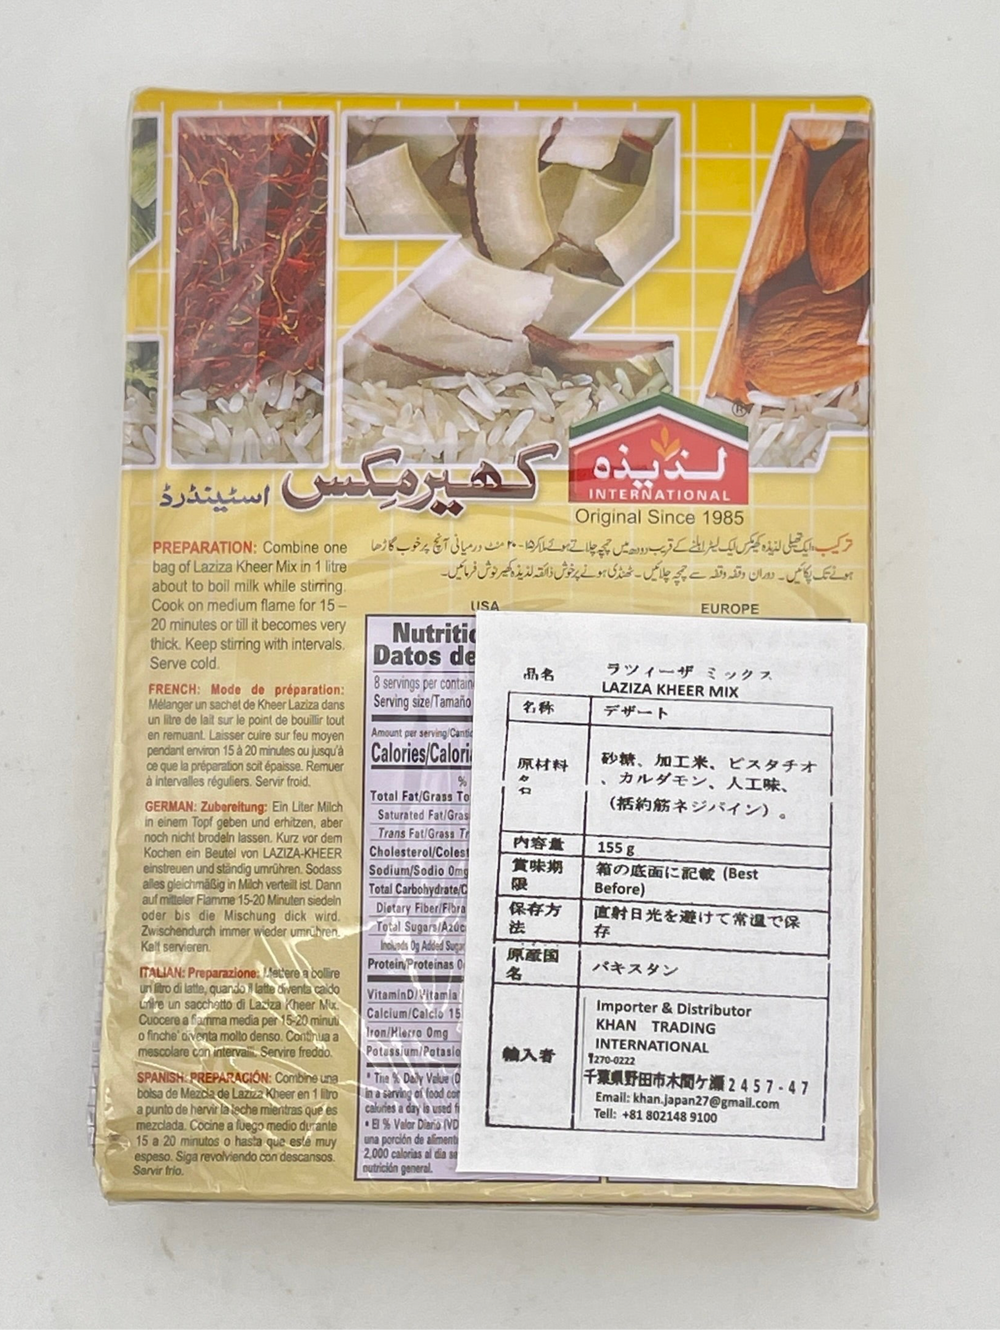 کھیر مکس اسٹینڈرڈ
لذیذہ
®
INTERNATIONAL
Original Since 1985
PREPARATION: Combine one
bag of Laziza Kheer Mix in 1 litre
about to boil milk while stirring.
Cook on medium flame for 15 –
20 minutes or till it becomes very
thick. Keep stirring with intervals.
Serve cold.
FRENCH: Mode de préparation:
Mélanger un sachet de Kheer Laziza dans
un litre de lait sur le point de bouillir tout
en remuant. Laisser cuire sur feu moyen
pendant environ 15 à 20 minutes ou jusqu'à
ce que la préparation soit épaisse. Remuer
à intervalles réguliers. Servir froid.
GERMAN: Zubereitung: Ein Liter Milch
in einem Topf geben und erhitzen, aber
noch nicht brodeln lassen. Kurz vor dem
Kochen ein Beutel von LAZIZA-KHEER
einstreuen und ständig umrühren. Sodass
alles gleichmäßig in Milch verteilt ist. Dann
auf mitteler Flamme 15-20 Minuten siedeln
oder bis die Mischung dick wird.
Zwischendurch immer wieder umrühren.
Kalt servieren.
ITALIAN: Preparazione: Mettere a bollire
un litro di latte, quando il latte diventa caldo
unire un sacchetto di Laziza Kheer Mix.
Cuocere a fiamma media per 15-20 minuti
o finche' diventa molto denso. Continua a
mescolare con intervalli. Servire freddo.
SPANISH: PREPARACIÓN: Combine una
bolsa de Mezcla de Laziza Kheer en 1 litro
a punto de hervir la leche mientras que es
mezclada. Cocine a fuego medio durante
15 a 20 minutos o hasta que esté muy
espeso. Siga revolviendo con descansos.
Servir frío.
USA
EUROPE
Nutritio
Datos de
8 servings per contain
Serving size/Tamaño
Amount per serving/Cantid
Calories/Calori
%
Total Fat/Grass To
Saturated Fat/Gras
Trans Fat/Grass Tr
Cholesterol/Colest
Sodium/Sodio 0mg
Total Carbohydrate/C
Dietary Fiber/Fibra
Total Sugars/Azúc
Includs 0g Added Sugar
Protein/Proteinas 0
VitaminD/Vitamia
Calcium/Calcio 15
Iron/Hierro 0mg
Potassium/Potasio
* The % Daily Value (D
in a serving of food con
calories a day is used f
• El % Valor Diario (VD
una porción de aliment
2,000 calorias al dia se
nutrición general.
品名 ラツィーザ ミックス
LAZIZA KHEER MIX
名称 デザート
原材料名 砂糖、加工米、ピスタチオ
、カルダモン、人工味、
（括約筋ネジパイン）。
内容量 155 g
賞味期限 箱の底面に記載 (Best
Before)
保存方法 直射日光を避けて常温で保
存
原産国名 パキスタン
輸入者
Importer & Distributor
KHAN TRADING
INTERNATIONAL
〒270-0222
千葉県野田市木間ケ瀬2457-47
Email: khan.japan27@gmail.com
Tell: +81 802148 9100